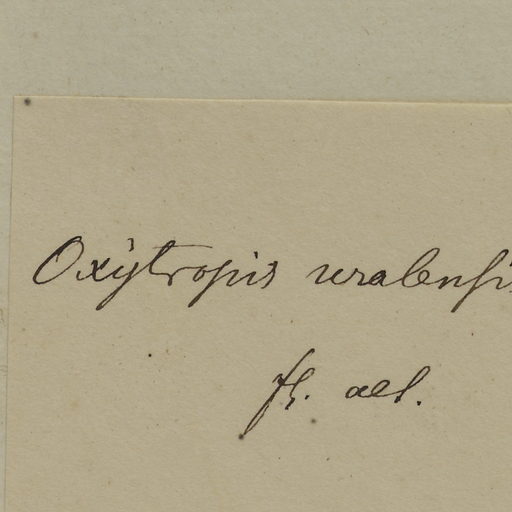 Oxÿtropis uralensis
fl. alb.